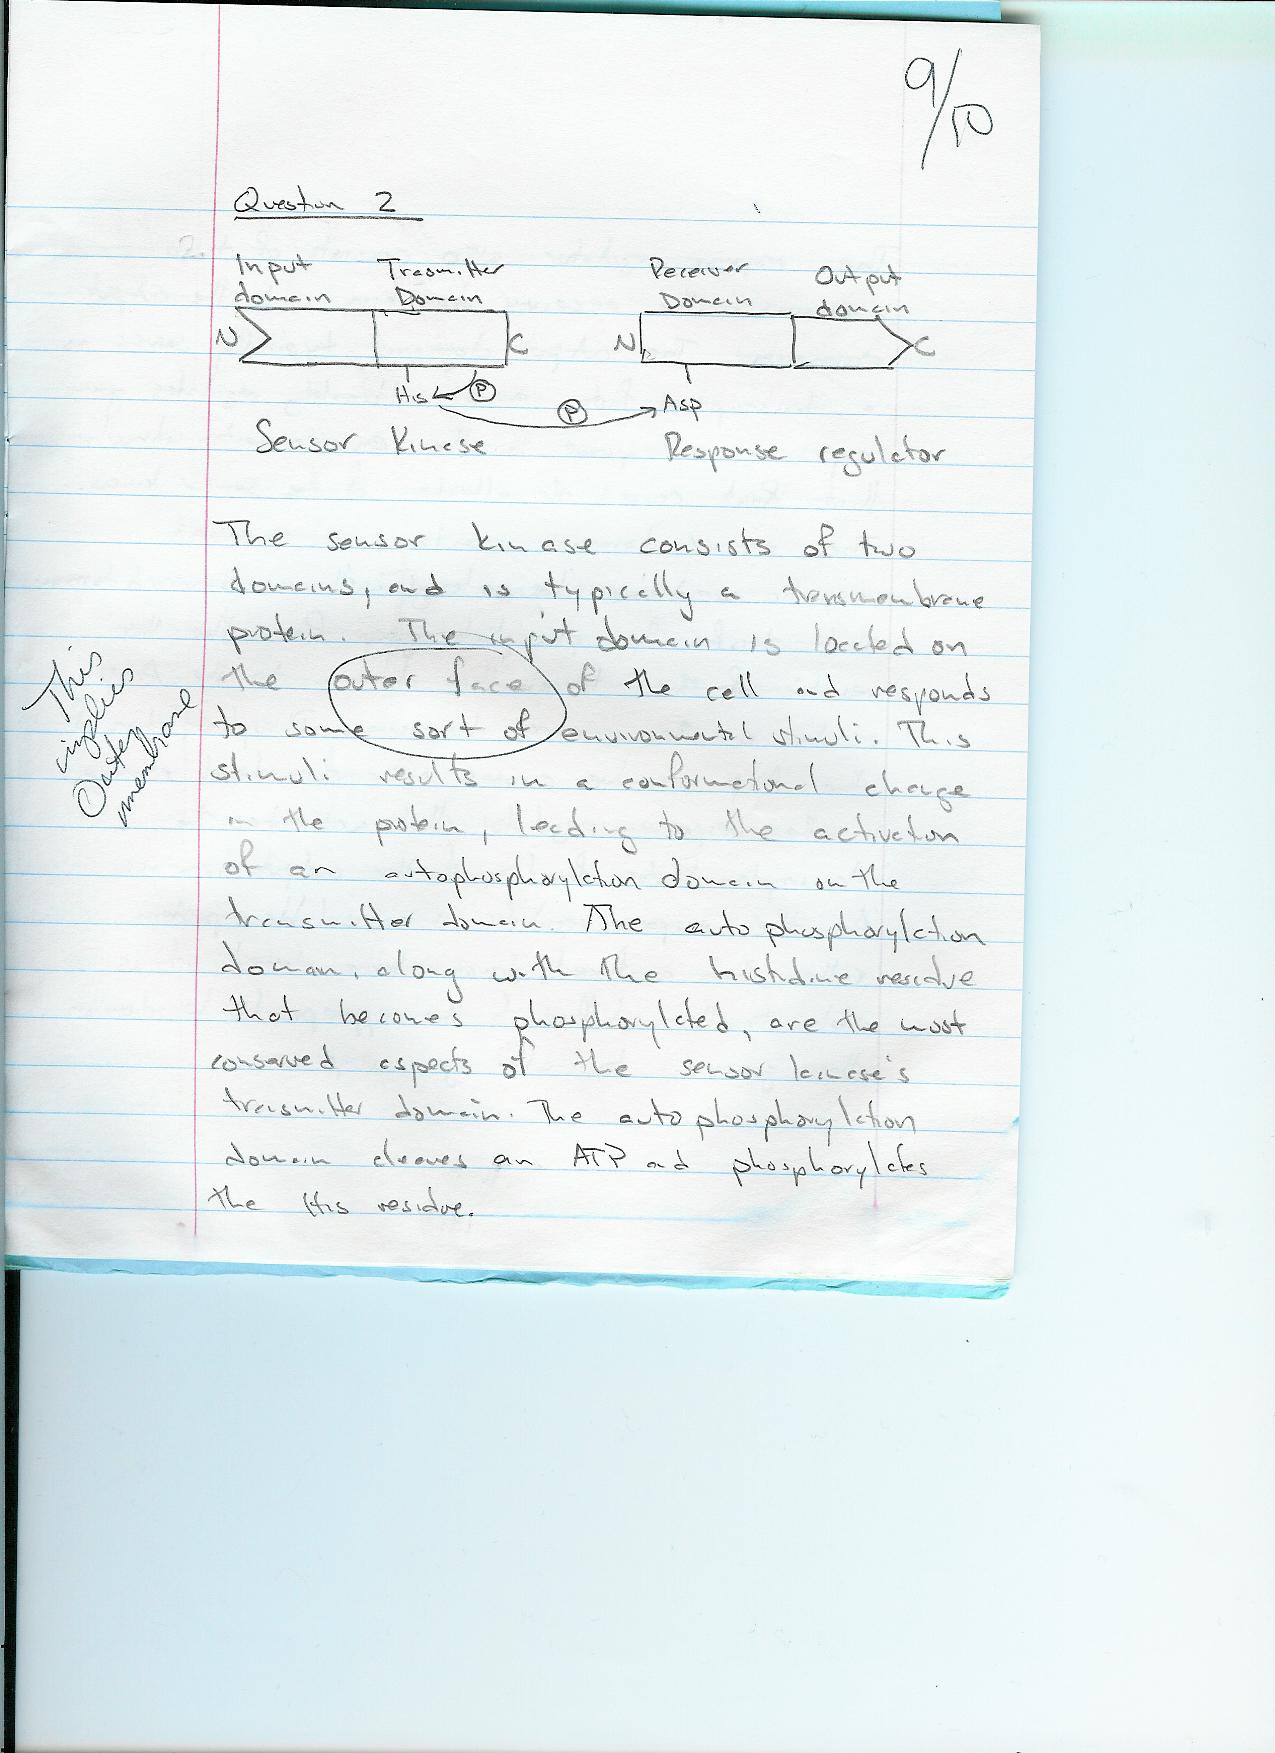 9/10
Question 2
Input domain
Trasmitter Domain
Receiver Domain
Output domain
N
C
N
C
His
P
P
Asp
Sensor Kinase
Response regulator
The sensor kinase consists of two
domains, and is typically a transmembrane
protein. The input domain is located on
the outer face of the cell and responds
to some sort of environmental stimuli. This
stimuli results in a conformational change
in the protein, leading to the activation
of an autophosphorylation domain on the
transmitter domain. The autophosphorylation
domain, along with the histidine residue
that becomes phosphorylated, are the most
conserved aspects of the sensor kinase's
transmitter domain. The autophosphorylation
domain cleaves an ATP and phosphorylates
the His residue.
This
implies
Outer
membrane